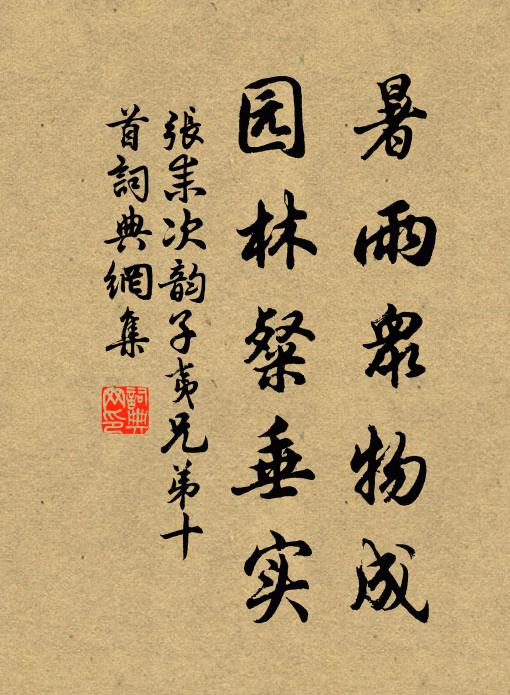 暑雨衆物成
园林粲垂实
張耒次韵子夷兄弟十
首詞典網集
詞典
网印